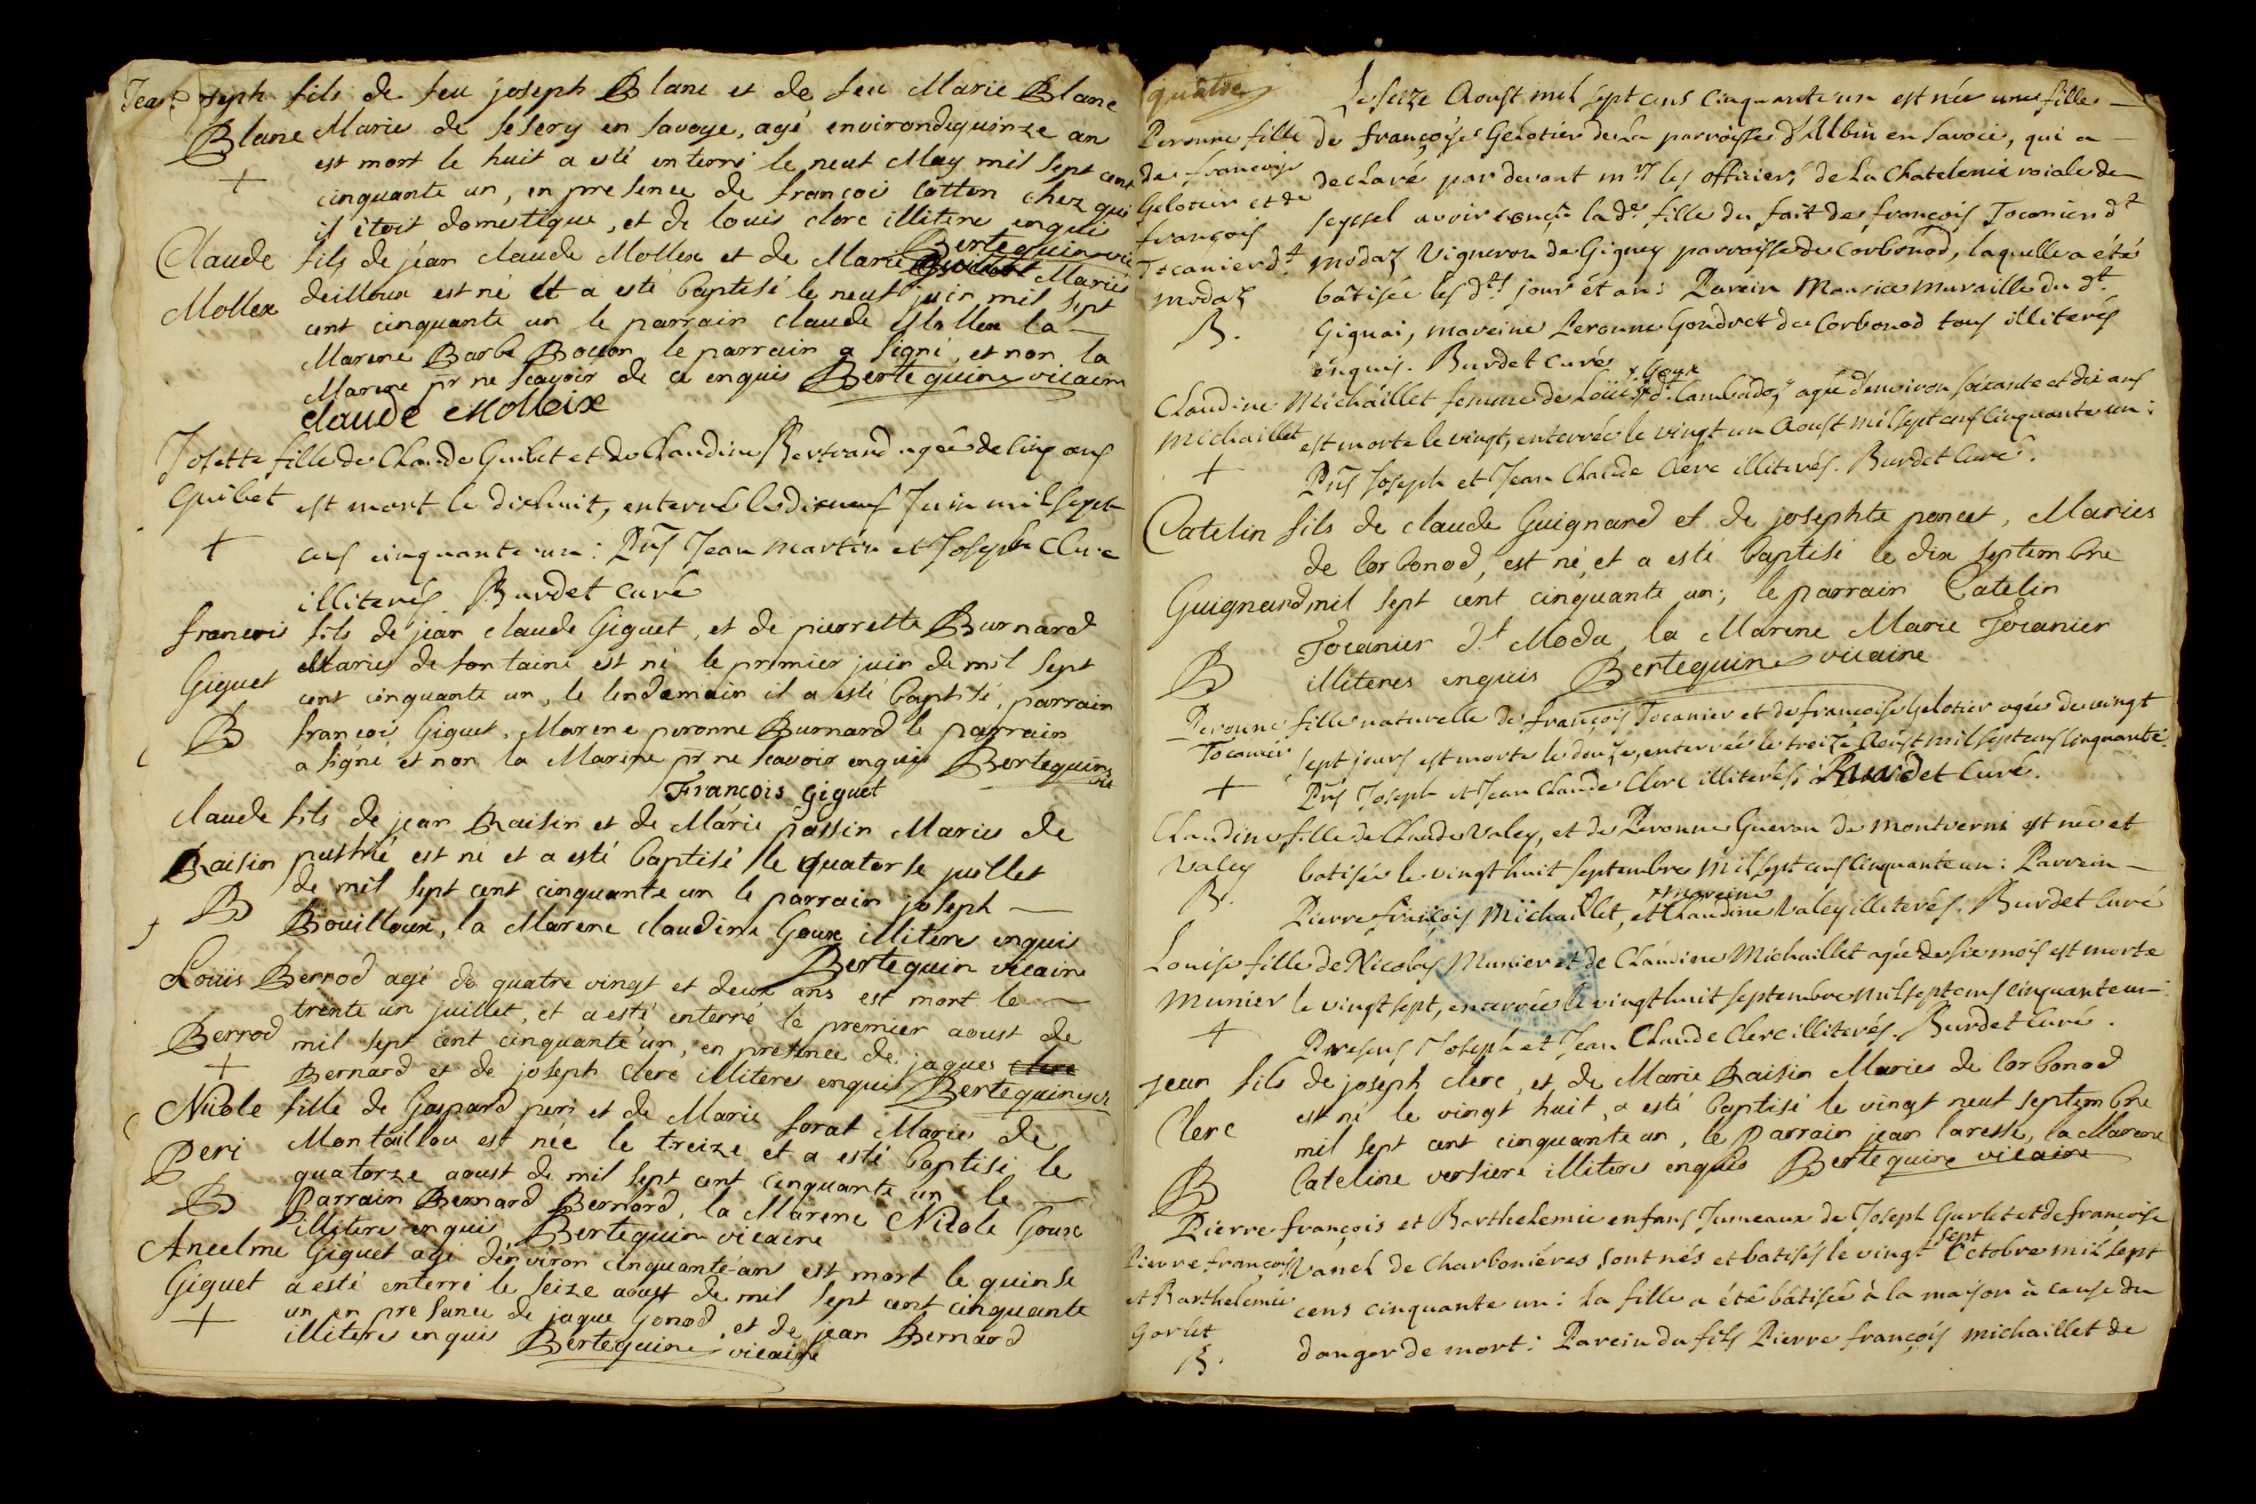 Jean joseph fils de feu joseph Blanc et de feu Marie Blanc
Blanc Mariés de sesery en savoye, agé environ de quinze an
est mort le huit a esté enterré le neuf May mil sept cent
+ cinquante un, en presence de françois Cotton chez qui
il étoit domestique, et de louis clerc illiteres enquis
Bertequin vic
Claude fils de jéan claude Mollex et de Marie Mariés
Mollex deilloux est né et a esté baptisé le neuf juin mil sept
cent cinquante un le parrain claude Mollex la
Marene Barbe Bouon le parrain a signé, et non la
Marene pr ne scavoir de ce enquis Bertequin vicaire
claude Molleix
Josette fille de Claude Guibet et de Claudine Bertrand agée de cinq ans
Guibet est mort le dixhuit, enterré le dixneuf Juin mil sept
+ cens cinquante un: Pns Jean Martin et Joseph Clerc
illiterés Burdet curé
francois fils de jean claude Giguet, et de pierrette Burnard
Giguet Mariés de fontaine est né le premier juin de mil sept
cent cinquante un, le lendemain il a esté baptisé, parrain
B françois Giguet, Marene peronne Burnard le parrain
a signé et non la Marene pr ne scavoir enquis Bertequin vic
François giguet
claude fils de jean Raisin et de Marie passin Mariés de
Raisin puthié est né et a esté baptisé le quatorse juillet
B de mil sept cent cinquante un le parrain joseph
Bouilloux, la Marene claudine Goux illiteres enquis
Bertequin vicaire
Louis Berrod agé de quatre vingt et deux ans est mort le
trente un juillet, et a esté enterré le premier aoust de
Berrod mil sept cent cinquante un, en presence de jaques clerc
+ Bernard et de joseph clerc illiteres enquis Bertequin vic
Nicole fille de Gaspard peri et de Marie forat Mariés de
Peri Montaillou est née le treize et a esté baptisé le
quatorze aoust de mil sept cent cinquante un le
B Parrain Bernard Bernard, la Marene Nicole Goux
illiteres enquis Bertequin vicaire
Ancelme Giguet agé d'environ cinquante ans est mort le quinse
Giguet a esté enterré le seize aoust de mil sept cent cinquante
+ un en presance de jaque Gonod, et de jean Bernard
illiteres enquis Bertequin vicaire
quatre
Le seize Aoust mil sept cens cinquante un est née une fille
Peronne fille de françoise Gelotier de la parroisse d'Albin en Savoie, qui a
de francoise declaré par devant mrs les officiers de La Chatelenie roiale de
Gelotier et de seyssel avoir conçu la de fille du fait de françois Tocanier dt
françois modaz Vigneron de Gignez parroisse de Corbonod, laquelle a été
Tocanier dt bâtisée les dts jour et an: Parein Maurice muraille du dt
modaz Gignai, mareine Peronne Goudret de Corbonod tous illiterés
B. enquis. Burdet curé
Claudine Michaillet femme de Loüis x Goux dt Cambadoz agée d'environ soixante et dix ans
Michaillet est morte le vingt, enterrée le vingt un Aoust mil sept cens cinquante un:
+ Pns Joseph et Jean Claude Clerc illiterés. Burdet Curé.
Catelin fils de claude Guignard et de josephte poncet, Mariés
de Corbonod, est né, et a esté baptisé le dix septembre
Guignard mil sept cent cinquante un; le parrain Catelin
Tocanier dt Moda, la Marene Marie Tocanier
B illiteres enquis Bertequin vicaire
Peronne fille naturelle de françois Tocanier et de françoise Gelotier agée de vingt
Tocanier sept jours est morte le douze, enterrée le treize Aoust mil sept cens cinquante
+ Pns Joseph et Jean Claude Clerc illiterés: Burdet Curé.
Claudine fille de Claude Valey, et de Peronne Gueron de montverni est née et
Valey batisée le vingt huit septembre mil sept cens cinquante un: Parrein
B. Pierre françois Michaillet, et x mareine Claudine Valey illiterés. Burdet Curé
Louise fille de Nicolas Munier et de Claudine Michaillet agée de six mois est morte
Munier le vingt sept, enterrée le vingt huit septembre mil sept cens cinquante un:
+ Presens Joseph et Jean Claude Clerc illiterés. Burdet Curé.
jean fils de joséph clerc, et de Marie Raisin Mariés de Corbonod
est né le vingt huit, a esté baptisé le vingt neuf septembre
Clerc mil sept cent cinquante un, le Parrain jean laresse, la Marene
B Cateline versiere illiteres enquis Bertequin vicaire
Pierre françois et Barthelemie enfans Jumeaux de Joseph Gurlet et de françoise
Pierre françois Vanel de Charbonières sont nés et batisés le vingt sept Octobre mil sept
et Barthelemie cens cinquante un: La fille a été bâtisée à la maison à cause du
Gorlet danger de mort: Parein du fils Pierre françois michaillet de
B.